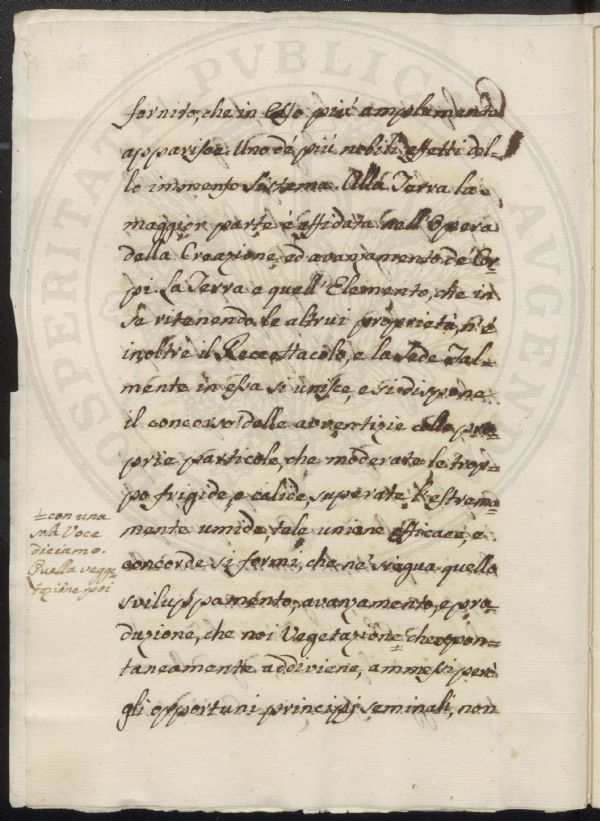 PROSPERITATI PVBLICAE AVGENDAE
fornito, che in Esso più amplamente
apparisce. Uno dè più nobili effetti del-
lo immenso Sistema. Alla Terra la
maggior parte è affidata nell'Opera
della Creazione, ed avanzamento dè Cor-
pi. La Terra e quell'Elemento, che in
se ritenendo le altrui proprietà, n'è
inoltre il Recettacolo, e la Sede. Tal-
mente in essa si unisce, e si dispone
il concorso delle avventizie colle pro-
prie particole, che moderate le trop-
po frigide, e calide, superate l'estrema-
mente umide, tale unione efficace, e
concorde si formi, che nè siegua quello
sviluppamento, avanzamento, e pro-
duzione, che noi Vegetazione che spon-
taneamente addiviene, ammessi però
gli opportuni principj seminali, non
con una
sola Voce
diciamo.
Quella vege-
tazione poi